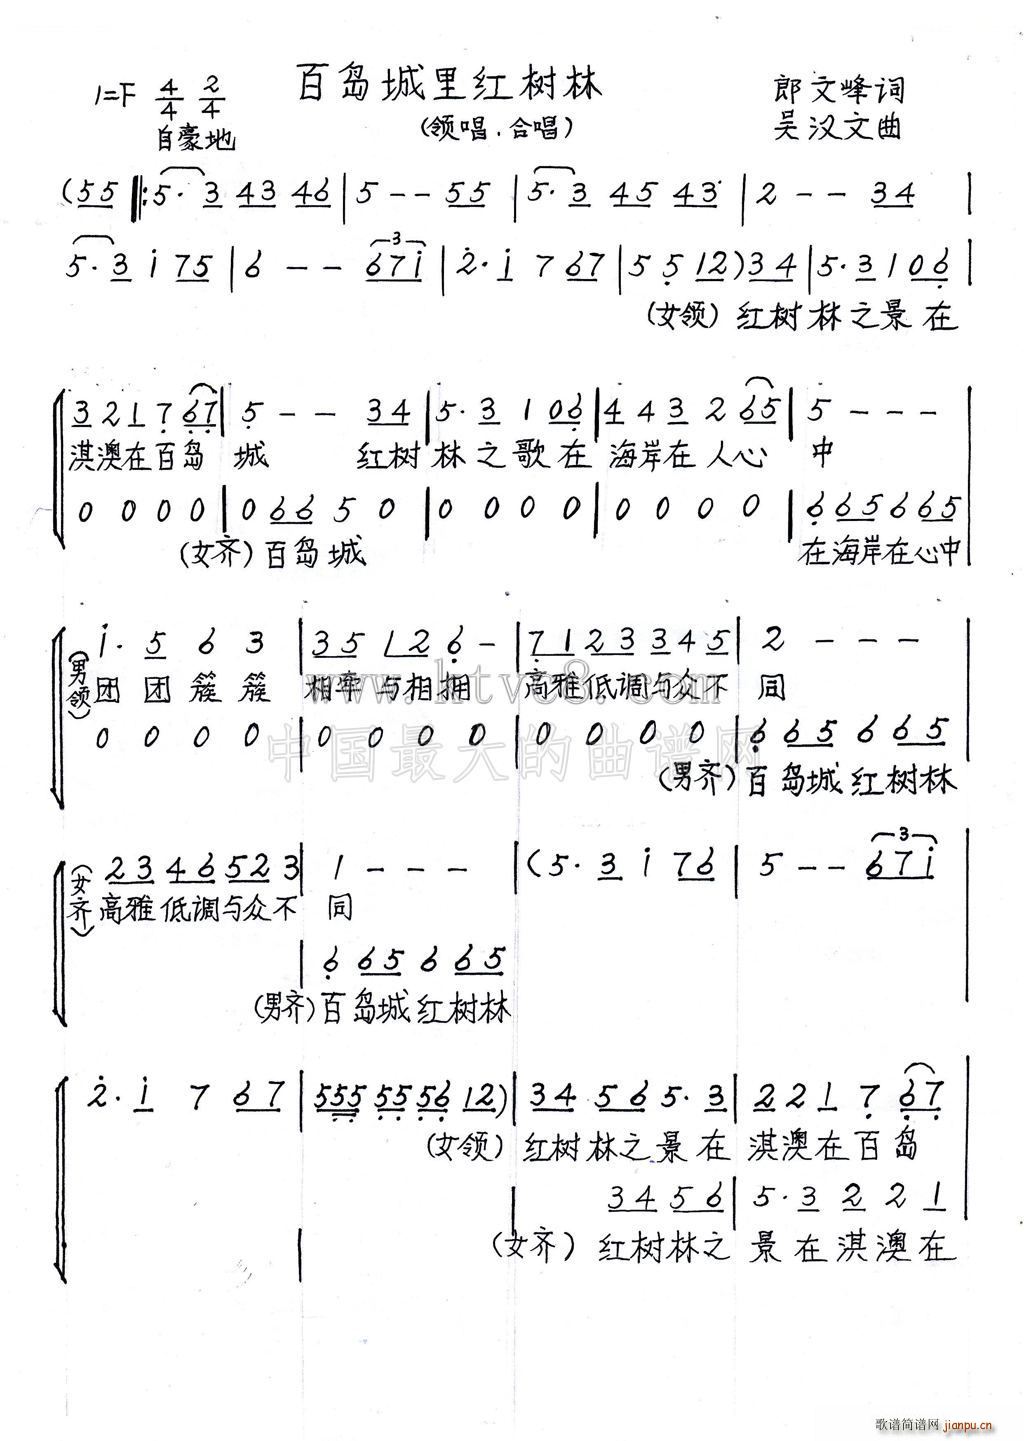 百岛城里红树林
1=F 4/4 2/4
郎文峰词
(领唱、合唱)
吴汉文曲
自豪地
(55 |: 5·3 43 46 | 5 - - 55 | 5·3 45 43· | 2 - - 34 |
5·3 i 75 | 6 - - 67i | 2·i 7 67 | 5 5 12) 34 | 5·3 1 06 |
(女领) 红树林之景在
3 2 1 7 67 | 5 - - 34 | 5·3 1 06 | 4 4 3 2 65 | 5 - - - |
淇澳在百岛 城 红树林之歌在 海岸在人心 中
0 0 0 0 | 0 66 5 0 | 0 0 0 0 | 0 0 0 0 | 6 65 6 65 |
(女齐) 百岛城 在海岸在心中
(男领) i·5 6 3 | 35 12 6 - | 71 23 34 5 | 2 - - - |
团团簇簇 相牵与相拥 高雅低调与众不 同
0 0 0 0 | 0 0 0 0 | 0 0 0 0 | 6 65 6 65 |
(男齐) 百岛城红树林
www.ktvc8.com
中国最大的曲谱网
(女齐) 23 46 52 3 | 1 - - - | (5·3 i 76 | 5 - - 67i |
高雅低调与众不 同
| 6 65 6 65
(男齐) 百岛城红树林
2·i 7 67 | 555 55 56 12) | 34 56 5·3 | 2 2 1 7 67 |
(女领) 红树林之景在 淇澳在百岛
| 34 56 | 5·3 2 2 1 |
(女齐) 红树林之 景在淇澳在
歌谱简谱网
jianpu.cn